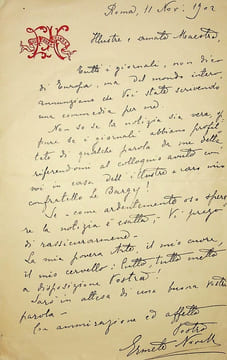 Roma, 11 Nov: 1902
Illustre e amato Maestro,
Tutti i giornali, non dico
di Europa, ma del mondo intero,
annunziano che Voi state scrivendo
una commedia per me.
Non so se la notizia sia vera, op
pure se i giornali abbiano profit
tato di qualche parola da me detta
riferendomi al colloquio avuto con
voi in casa dell'illustre e caro mio
confratello Le Bargy!
Se - come ardentemente oso spera
re la notizia è esatta, Vi prego
di rassicurarmene.
La mia povera Arte, il mio cuore,
il mio cervello: tutto, tutto metto
a disposizione Vostra!
Sarò in attesa di una buona vostra
parola -
Con ammirazione ed affetto
Vostro
Ermete Novelli